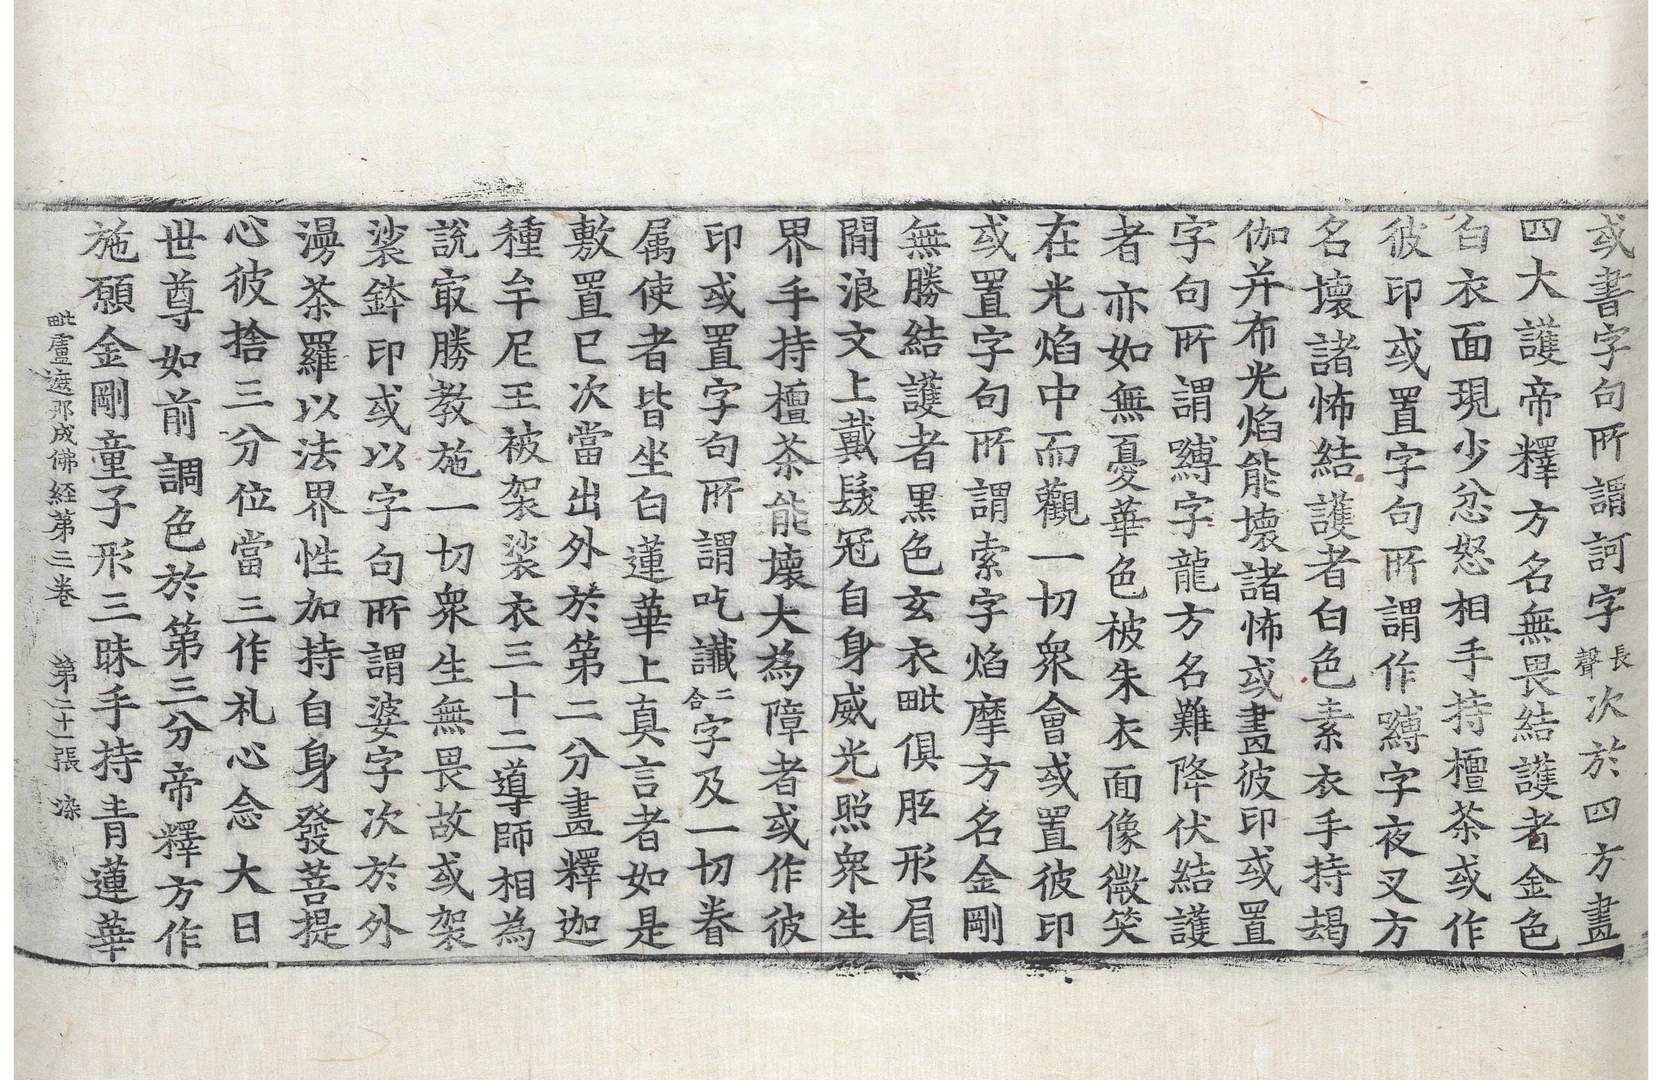 或書字句所謂訶字長聲次於四方畫
四大護帝釋方名無畏結護者金色
白衣面現少忿怒相手持檀茶或作
彼印或置字句所謂作嚩字夜叉方
名壞諸怖結護者白色素衣手持朅
伽并布光焰能壞諸怖或畫彼印或置
字句所謂嚩字龍方名難降伏結護
者亦如無憂華色被朱衣面像微笑
在光焰中而觀一切衆會或置彼印
或置字句所謂索字焰摩方名金剛
無勝結護者黑色玄衣毗俱胝形眉
間浪文上戴髮冠自身威光照衆生
界手持檀茶能壞大為障者或作彼
印或置字句所謂吃讖二合字及一切眷
属使者皆坐白蓮華上真言者如是
敷置已次當出外於第二分畫釋迦
種牟尼王被袈裟衣三十二導師相為
說㝡勝教施一切衆生無畏故或袈
裟鉢印或以字句所謂婆字次於外
漫茶羅以法界性加持自身發菩提
心彼捨三分位當三作礼心念大日
世尊如前調色於第三分帝釋方作
施願金剛童子形三昧手持青蓮華
毗盧遮那成佛経第二卷 第二十一張 染